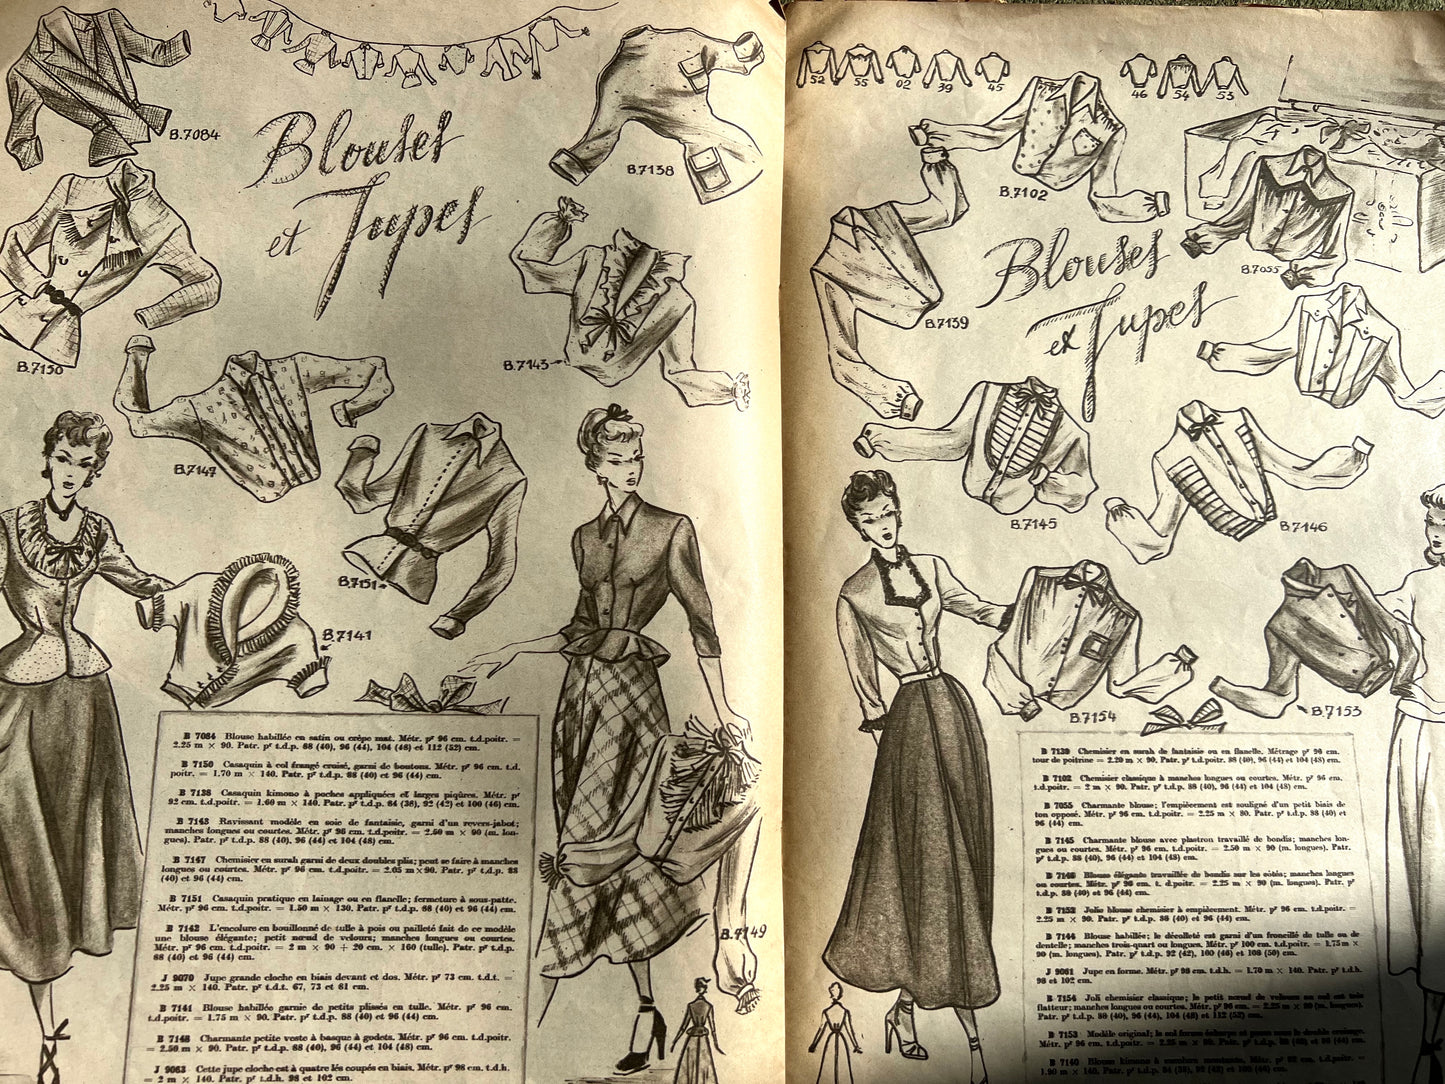 B.7084
Blouses
et Jupes
B.7138
B.7150
B.7143
B.7147
B.7151
B.7141
B.7149
B 7084 Blouse habillée en satin ou crêpe mat. Métr. pʳ 96 cm. t.d.poitr. =
2.25 m × 90. Patr. pʳ t.d.p. 88 (40), 96 (44), 104 (48) et 112 (52) cm.
B 7150 Casaquin à col frangé croisé, garni de boutons. Métr. pʳ 96 cm. t.d.
poitr. = 1.70 m × 140. Patr. pʳ t.d.p. 88 (40) et 96 (44) cm.
B 7138 Casaquin kimono à poches appliquées et larges piqûres. Métr. pʳ
92 cm. t.d.poitr. = 1.60 m × 140. Patr. pʳ t.d.p. 84 (38), 92 (42) et 100 (46) cm.
B 7143 Ravissant modèle en soie de fantaisie, garni d'un revers-jabot;
manches longues ou courtes. Métr. pʳ 96 cm. t.d.poitr. = 2.60 m × 90 (m. lon-
gues). Patr. pʳ t.d.p. 88 (40), 96 (44) et 104 (48) cm.
B 7147 Chemisier en surah garni de deux doubles plis; peut se faire à manches
longues ou courtes. Métr. pʳ 96 cm. t.d.poitr. = 2.05 m × 90. Patr. pʳ t.d.p. 88
(40) et 96 (44) cm.
B 7151 Casaquin pratique en lainage ou en flanelle; fermeture à sous-patte.
Métr. pʳ 96 cm. t.d.poitr. = 1.50 m × 130. Patr. pʳ t.d.p. 88 (40) et 96 (44) cm.
B 7142 L'encolure en bouillonné de tulle à pois ou pailleté fait de ce modèle
une blouse élégante; petit nœud de velours; manches longues ou courtes.
Métr. pʳ 96 cm. t.d.poitr. = 2 m × 90 + 20 cm. × 160 (tulle). Patr. pʳ t.d.p.
88 (40) et 96 (44) cm.
J 9070 Jupe grande cloche en biais devant et dos. Métr. pʳ 73 cm. t.d.t. =
2.25 m × 140. Patr. pʳ t.d.t. 67, 73 et 81 cm.
B 7141 Blouse habillée garnie de petits plissés en tulle. Métr. pʳ 96 cm.
t.d.poitr. = 1.75 m × 90. Patr. pʳ t.d.p. 88 (40) et 96 (44) cm.
B 7148 Charmante petite veste à basque à godets. Métr. pʳ 96 cm. t.d.poitr.
= 2.50 m × 90. Patr. pʳ t.d.p. 88 (40), 96 (44) et 104 (48) cm.
J 9063 Cette jupe cloche est à quatre lés coupés en biais. Métr. pʳ 98 cm. t.d.h.
= 2 m × 140. Patr. pʳ t.d.h. 98 et 102 cm.
52 55 02 39 45
46 54 53
B.7102
B.7055
B.7139
Blouses
et Jupes
B.7145
B.7146
B.7154
B.7153
B 7139 Chemisier en surah de fantaisie ou en flanelle. Métrage pʳ 96 cm.
tour de poitrine = 2.20 m × 90. Patr. pʳ t.d.p. 88 (40), 96 (44) et 104 (48) cm.
B 7102 Chemisier classique à manches longues ou courtes. Métr. pʳ 96 cm.
t.d.poitr. = 2 m × 90. Patr. pʳ t.d.p. 88 (40), 96 (44) et 104 (48) cm.
B 7055 Charmante blouse; l'empiècement est souligné d'un petit biais de
ton opposé. Métr. pʳ 96 cm. t.d.poitr. = 2.25 m × 80. Patr. pʳ t.d.p. 88 (40) et
96 (44) cm.
B 7145 Charmante blouse avec plastron travaillé de bondis; manches lon-
gues ou courtes. Métr. pʳ 96 cm. t.d.poitr. = 2.50 m × 90 (m. longues). Patr.
pʳ t.d.p. 88 (40), 96 (44) et 104 (48) cm.
B 7146 Blouse élégante travaillée de bondis sur les côtés; manches longues
ou courtes. Métr. pʳ 96 cm. t. d.poitr. = 2.25 m × 90 (m. longues). Patr. pʳ
t.d.p. 88 (40) et 96 (44) cm.
B 7152 Jolie blouse chemisier à empiècement. Métr. pʳ 96 cm. t.d.poitr. =
2.25 m × 90. Patr. pʳ t.d.p. 88 (40) et 96 (44) cm.
B 7144 Blouse habillée; le décolleté est garni d'un froncillé de tulle ou de
dentelle; manches trois-quart ou longues. Métr. pʳ 100 cm. t.d.poitr. = 1.75 m ×
90 (m. longues). Patr. pʳ t.d.p. 92 (42), 100 (46) et 108 (50) cm.
J 9061 Jupe en forme. Métr. pʳ 98 cm. t.d.h. = 1.70 m × 140. Patr. pʳ t.d.h.
98 et 102 cm.
B 7154 Joli chemisier classique; le petit nœud de velours au col est très
flatteur; manches longues ou courtes. Métr. pʳ 96 cm. t.d.poitr. = 2.25 m × 90 (m. longues).
Patr. pʳ t.d.p. 88 (40), 96 (44), 104 (48) et 112 (52) cm.
B 7153 Modèle original; le col forme écharpe et passe sous le double croisage.
Métr. pʳ 96 cm. t.d.poitr. = 2.25 m × 90. Patr. pʳ t.d.p. 88 (40) et 96 (44) cm.
B 7140 Blouse kimono à encolure montante. Métr. pʳ 92 cm. t.d.poitr. =
1.90 m × 90. Patr. pʳ t.d.p. 84 (38), 92 (42) et 100 (46) cm.